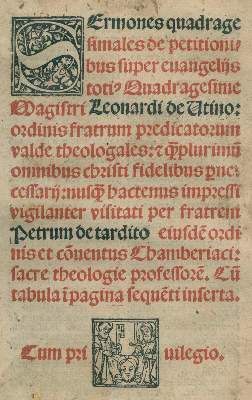 Sermones quadrage
simales de petitioni⸗
bus super euangelijs
totiꝰ Quadragesime
Magistri Leonardi de Utino:
ordinis fratrum predicatorum
valde theologales: ⁊ q̃plurimū
omnibus christi fidelibus ꝑne⸗
cessarij: nusq̃ hactenus impressi
vigilanter visitati per fratrem
Petrum de tardito eiusdē ordi
nis et cōuentus Chamberiaci:
sacre theologie professorē. Cū
tabula ī pagina sequēti inserta.
Cum pri uilegio.